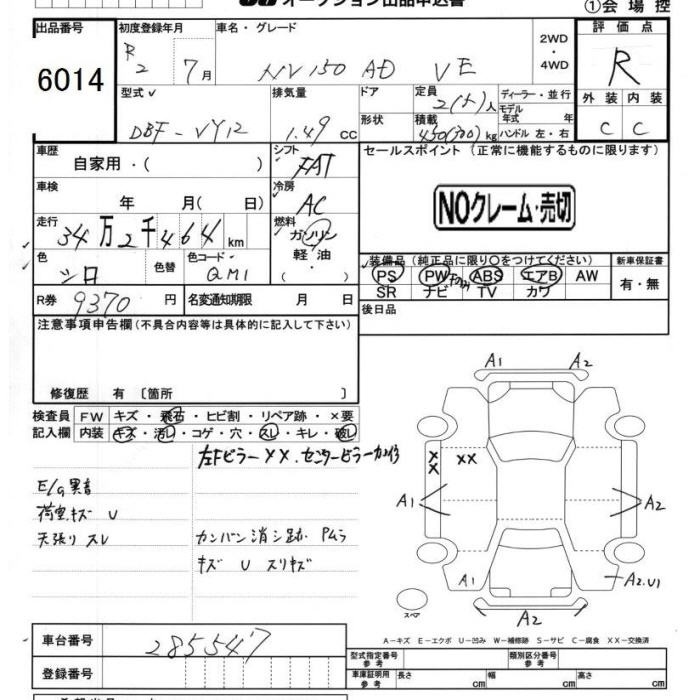 オークション出品申込書
①会場控
出品番号 初度登録年月 車名・グレード 評価点
6014 R2 7月 NV150 AD VE 2WD・4WD R
型式 排気量 ドア 定員 ディーラー・並行 外装 内装
DBF-VY12 1.49 CC 2(5)人 モデル年式 年 C C
形状 積載 450(300)kg ハンドル 左・右
車歴 シフト セールスポイント (正常に機能するものに限ります)
自家用・( ) FAT
車検 冷房
年 月( 日) AC
NOクレーム・売切
走行 燃料
34万2千464km ガソリン
軽油
・( )
色 色替 色コード
シロ QM1
装備品 (純正品に限り○をつけてください) 新車保証書
PS PW ABS エアB AW 有・無
SR ナビ TV カワ
R券 9370円 名変通知期限 月 日
後日品
注意事項申告欄(不具合内容等は具体的に記入して下さい)
修復歴 有 〔箇所 〕
検査員 FW キズ・飛石・ヒビ割・リペア跡・×要
記入欄 内装 キズ・汚レ・コゲ・穴・スレ・キレ・破レ
左Fピラー××.センターピラー
E/g異音
荷室キズ U
天張り スレ
カンバン消シ跡 Pムラ
キズ U スリキズ
A1 A2
×× ××
A1 A2
A1 A2.U1
スペア A2
A-キズ E-エクボ U-凹み W-補修跡 S-サビ C-腐食 XX-交換済
車台番号 285547
型式指定番号 参考 類別区分番号 参考
登録番号
車庫証明用 参考 長さ cm 幅 cm 高さ cm